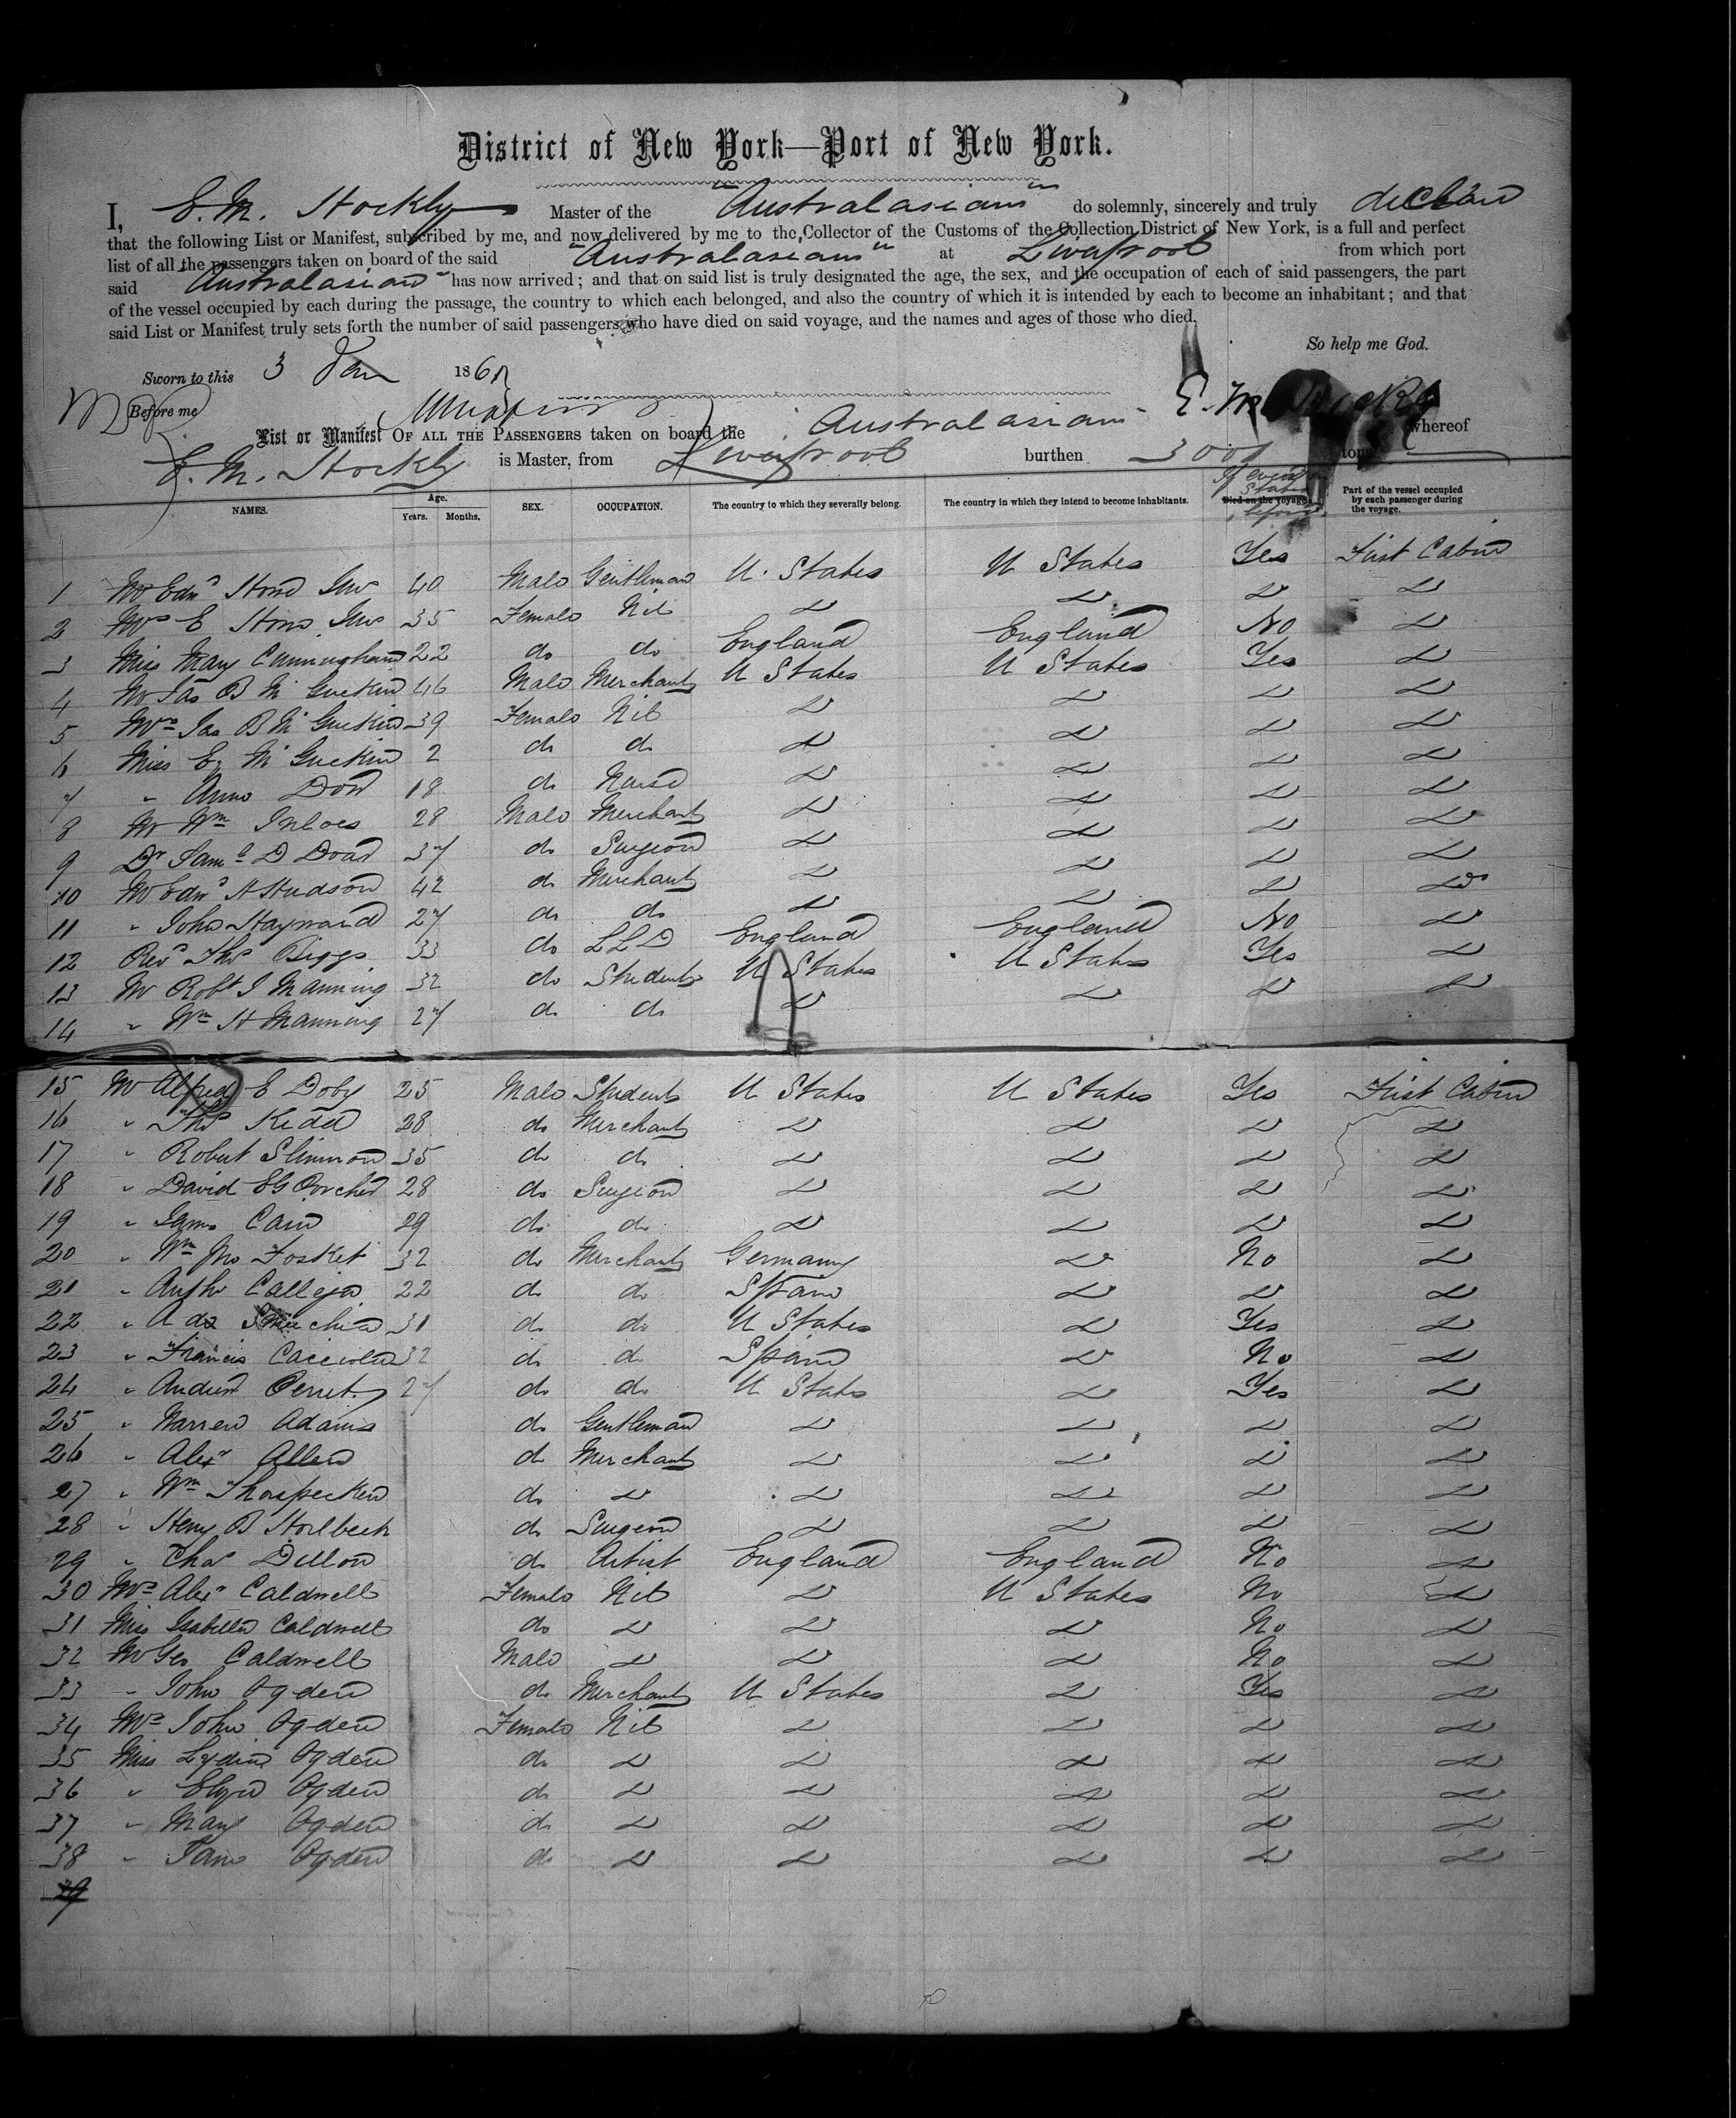 District of New York—Port of New York.
I, E. M. Stockly Master of the "Australasian" do solemnly, sincerely and truly declare
that the following List or Manifest, subscribed by me, and now delivered by me to the Collector of the Customs of the Collection District of New York, is a full and perfect
list of all the passengers taken on board of the said "Australasian" at Liverpool from which port
said "Australasian" has now arrived; and that on said list is truly designated the age, the sex, and the occupation of each of said passengers, the part
of the vessel occupied by each during the passage, the country to which each belonged, and also the country of which it is intended by each to become an inhabitant; and that
said List or Manifest truly sets forth the number of said passengers who have died on said voyage, and the names and ages of those who died.
So help me God.
Sworn to this 3 Jan 186
Before me
List or Manifest OF ALL THE PASSENGERS taken on board the "Australasian" whereof
E. M. Stockly is Master, from Liverpool burthen 3000 tons
NAMES. Age. Years. Months. SEX. OCCUPATION. The country to which they severally belong. The country in which they intend to become inhabitants. Died on the voyage. Part of the vessel occupied by each passenger during the voyage.
1 Mr Edwd 40 Male Gentleman U. States U States Yes First Cabin
2 Mrs E 35 Female Nil " " " "
3 Miss Mary Cunningham 22 do do England England No "
4 Mr Jas B McGuckin 46 Male Merchant U States U States Yes "
5 Mrs Jas B McGuckin 39 Female Nil " " " "
6 Miss E McGuckin 2 do do " " " "
7 " Anne Dow 18 do Nurse " " " "
8 Mr Wm Inloes 28 Male Merchant " " " "
9 Dr Saml D Doar 37 do Surgeon " " " "
10 Mr Edwd H Hudson 42 do Merchant " " " "
11 " John Hayward 27 do do " " " "
12 Revd Thos Biggs 33 do LLD England England No "
13 Mr Robt J Manning 32 do Student U States U States Yes "
14 " Wm H Manning 27 do do " " " "
15 Mr Alfred E Doby 25 Male Student U States U States Yes First Cabin
16 " Thos Kedd 28 do Merchant " " " "
17 " Robert Slimmon 35 do do " " " "
18 " David EG Porcher 28 do Surgeon " " " "
19 " James Cain 29 do do " " " "
20 " Wm Jno Fosket 32 do Merchant Germany " No "
21 " Callejas 22 do do Spain " " "
22 " A da 31 do do U States " Yes "
23 " Francis 32 do do Spain " No "
24 " Andrew Perret 27 do do U States " Yes "
25 " Warren Adams do Gentleman " " " "
26 " Alexr Allen do Merchant " " " "
27 " Wm Thorspecken do " " " " "
28 " Henry B Horlbeck do Surgeon " " " "
29 " Chas Dillon do Artist England England No "
30 Mrs Alexr Caldwell Female Nil " U States No "
31 Miss Isabella Caldwell do " " " No "
32 Mr Geo Caldwell Male " " " No "
33 " John Ogden do Merchant U States " Yes "
34 Mrs John Ogden Female Nil " " " "
35 Miss Lydia Ogden do " " " " "
36 " Eliza Ogden do " " " " "
37 " Mary Ogden do " " " " "
38 " Jane Ogden do " " " " "
39